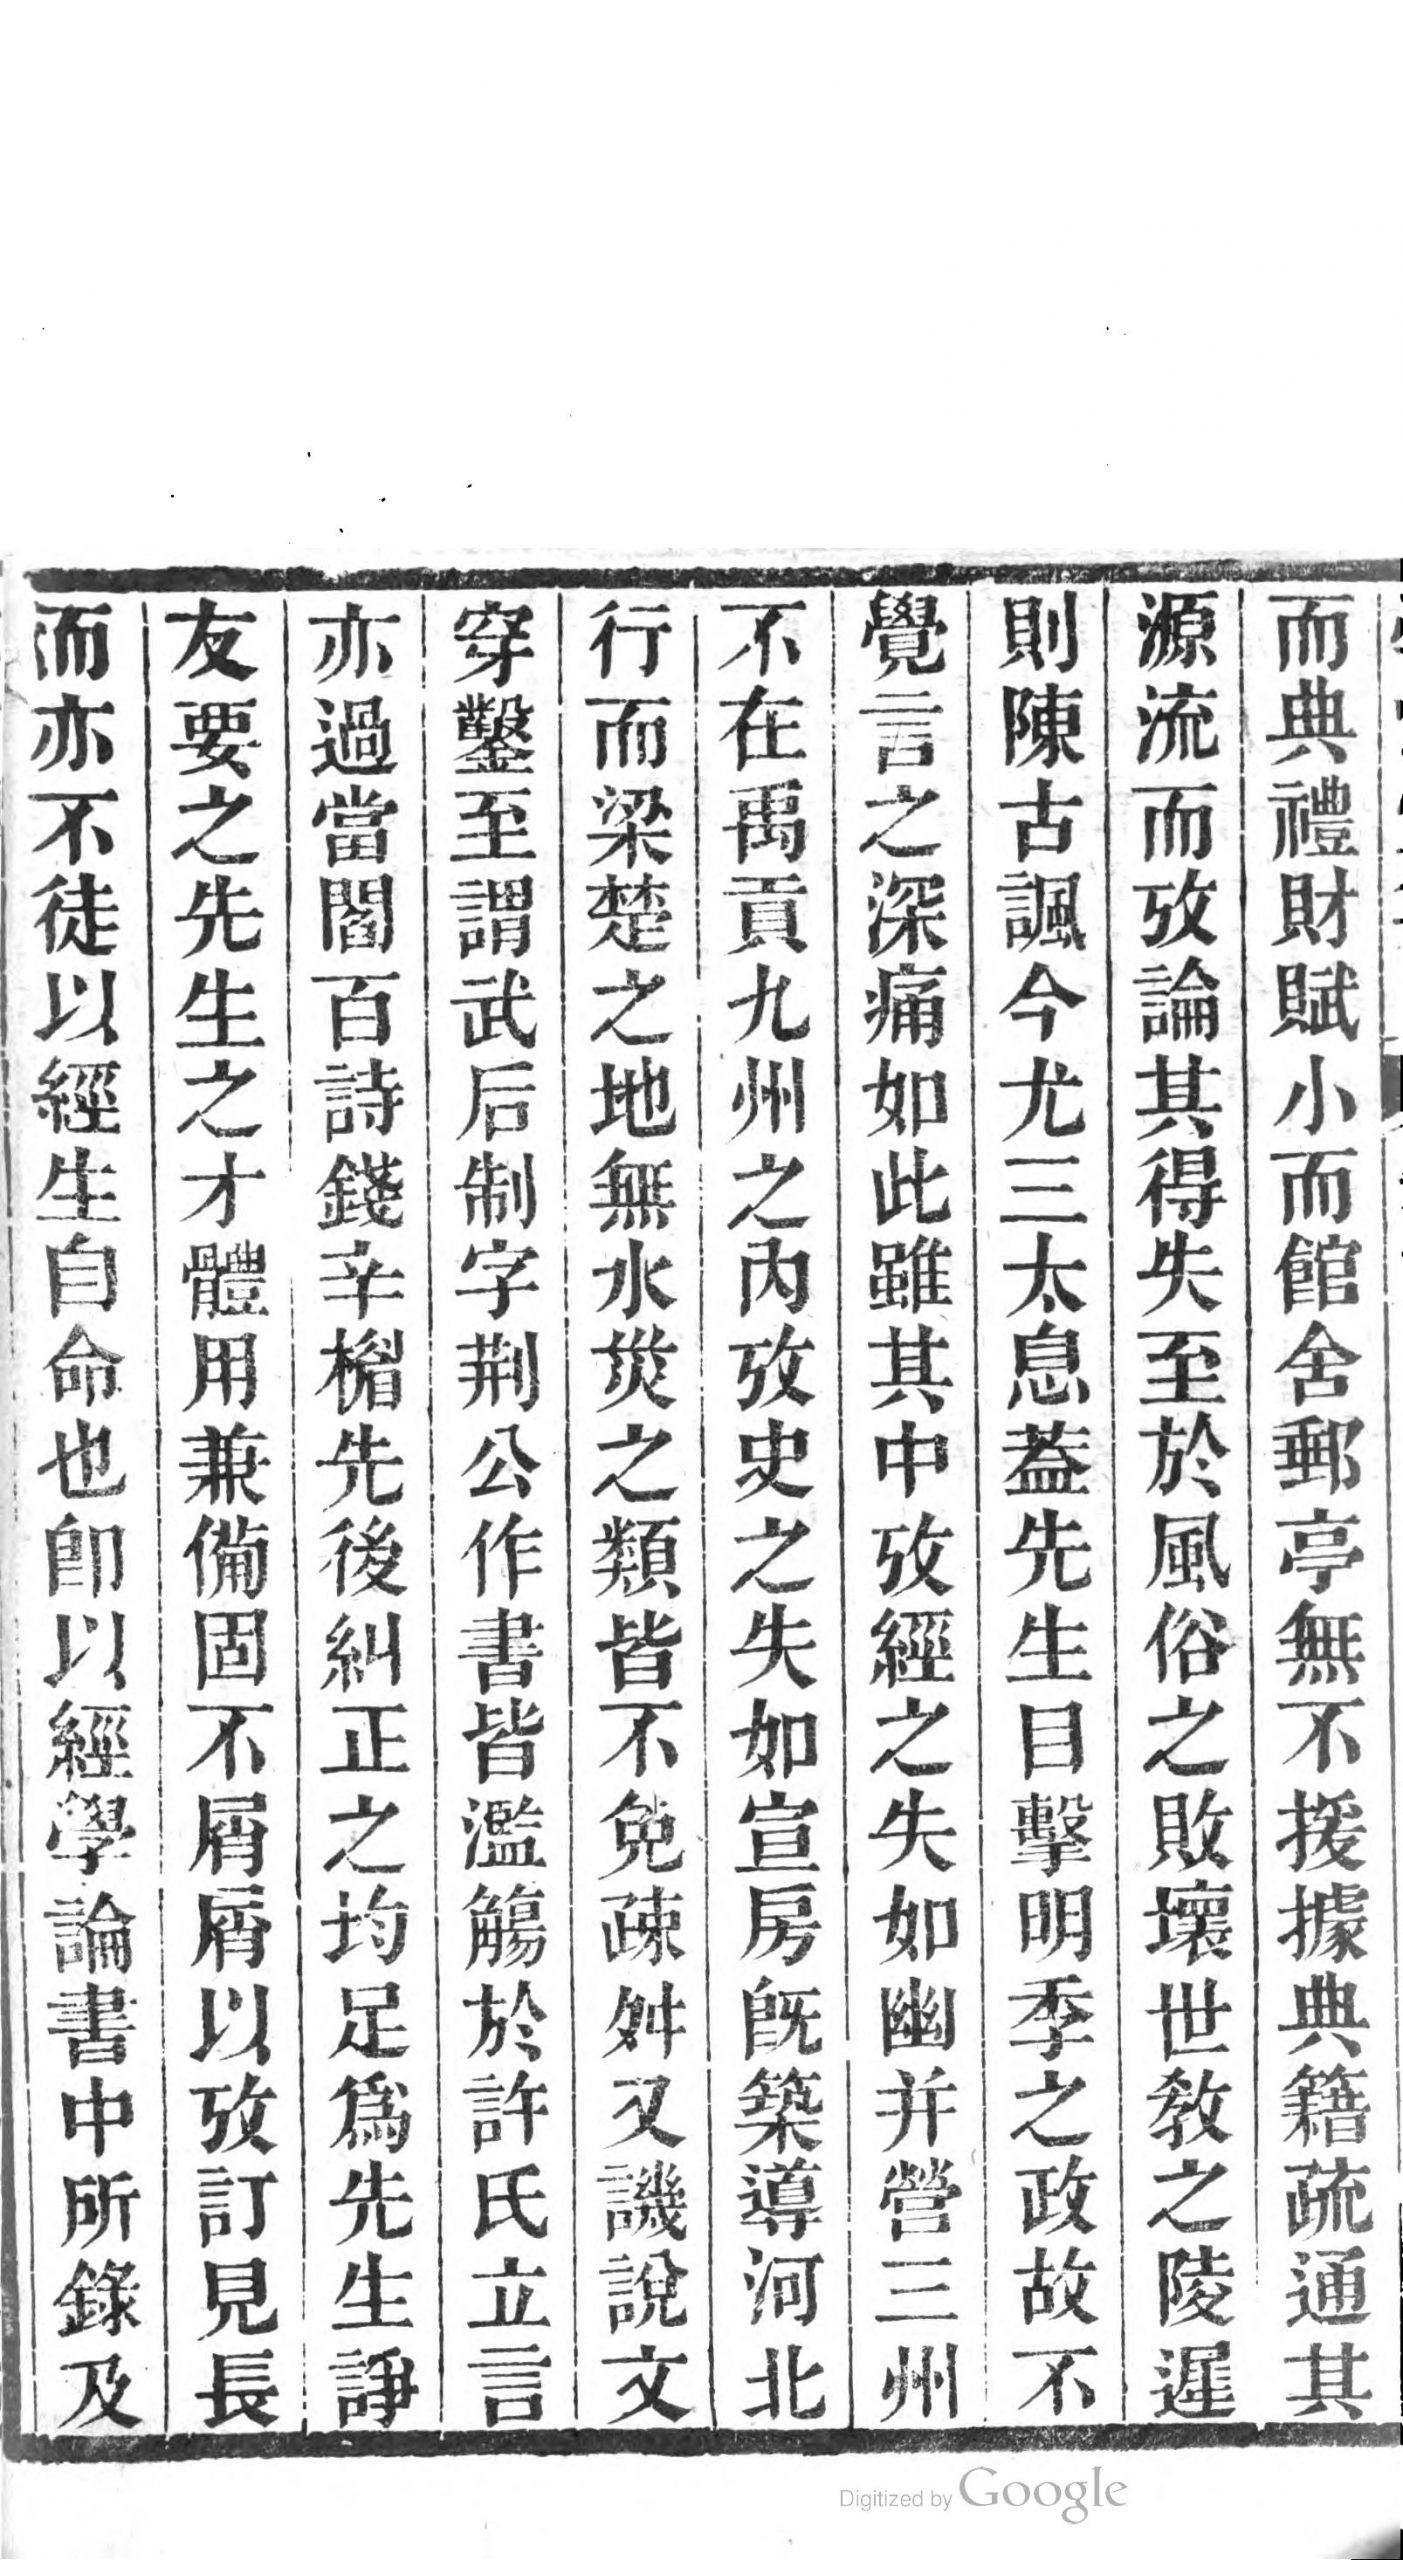 而典禮財賦小而館舍郵亭無不援據典籍疏通其
源流而攷論其得失至於風俗之敗壞世教之陵遲
則陳古諷今尤三太息蓋先生目擊明季之政故不
覺言之深痛如此雖其中攷經之失如幽并營三州
不在禹貢九州之內攷史之失如宣房旣築導河北
行而梁楚之地無水災之類皆不免疎舛又譏說文
穿鑿至謂武后制字荆公作書皆濫觴於許氏立言
亦過當閻百詩錢辛楣先後糾正之均足爲先生諍
友要之先生之才體用兼備固不屑屑以攷訂見長
而亦不徒以經生自命也卽以經學論書中所錄及
Digitized by Google